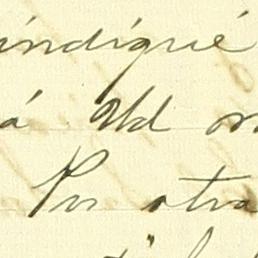 indiqué
á Ud
Por otra